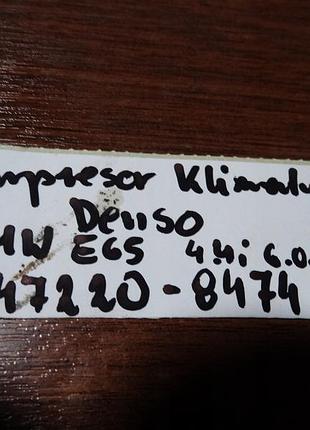 ompresor Klimaty
Denso
MW E65 4.4i 6.0
47220-8474